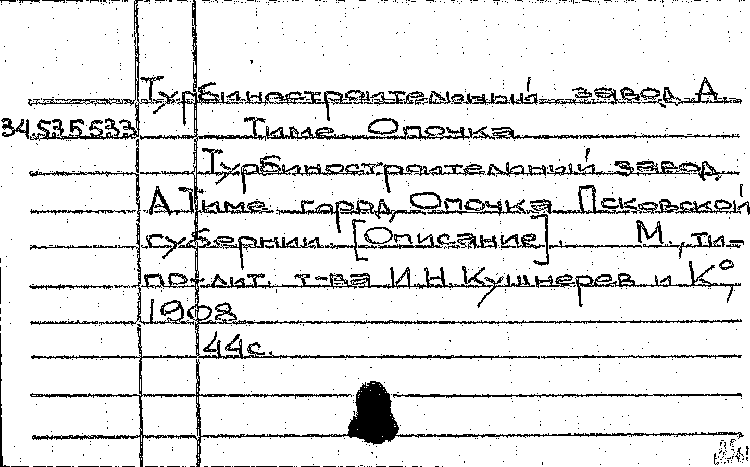 Турбиностроительный завод А.
34.535.533 Тиме. Опочка
Турбиностроительный завод
А.Тиме город Опочка Псковской
губернии. [Описание]. М., ти-
по-лит. т-ва И.Н.Кушнерев и К°,
1908
44с.